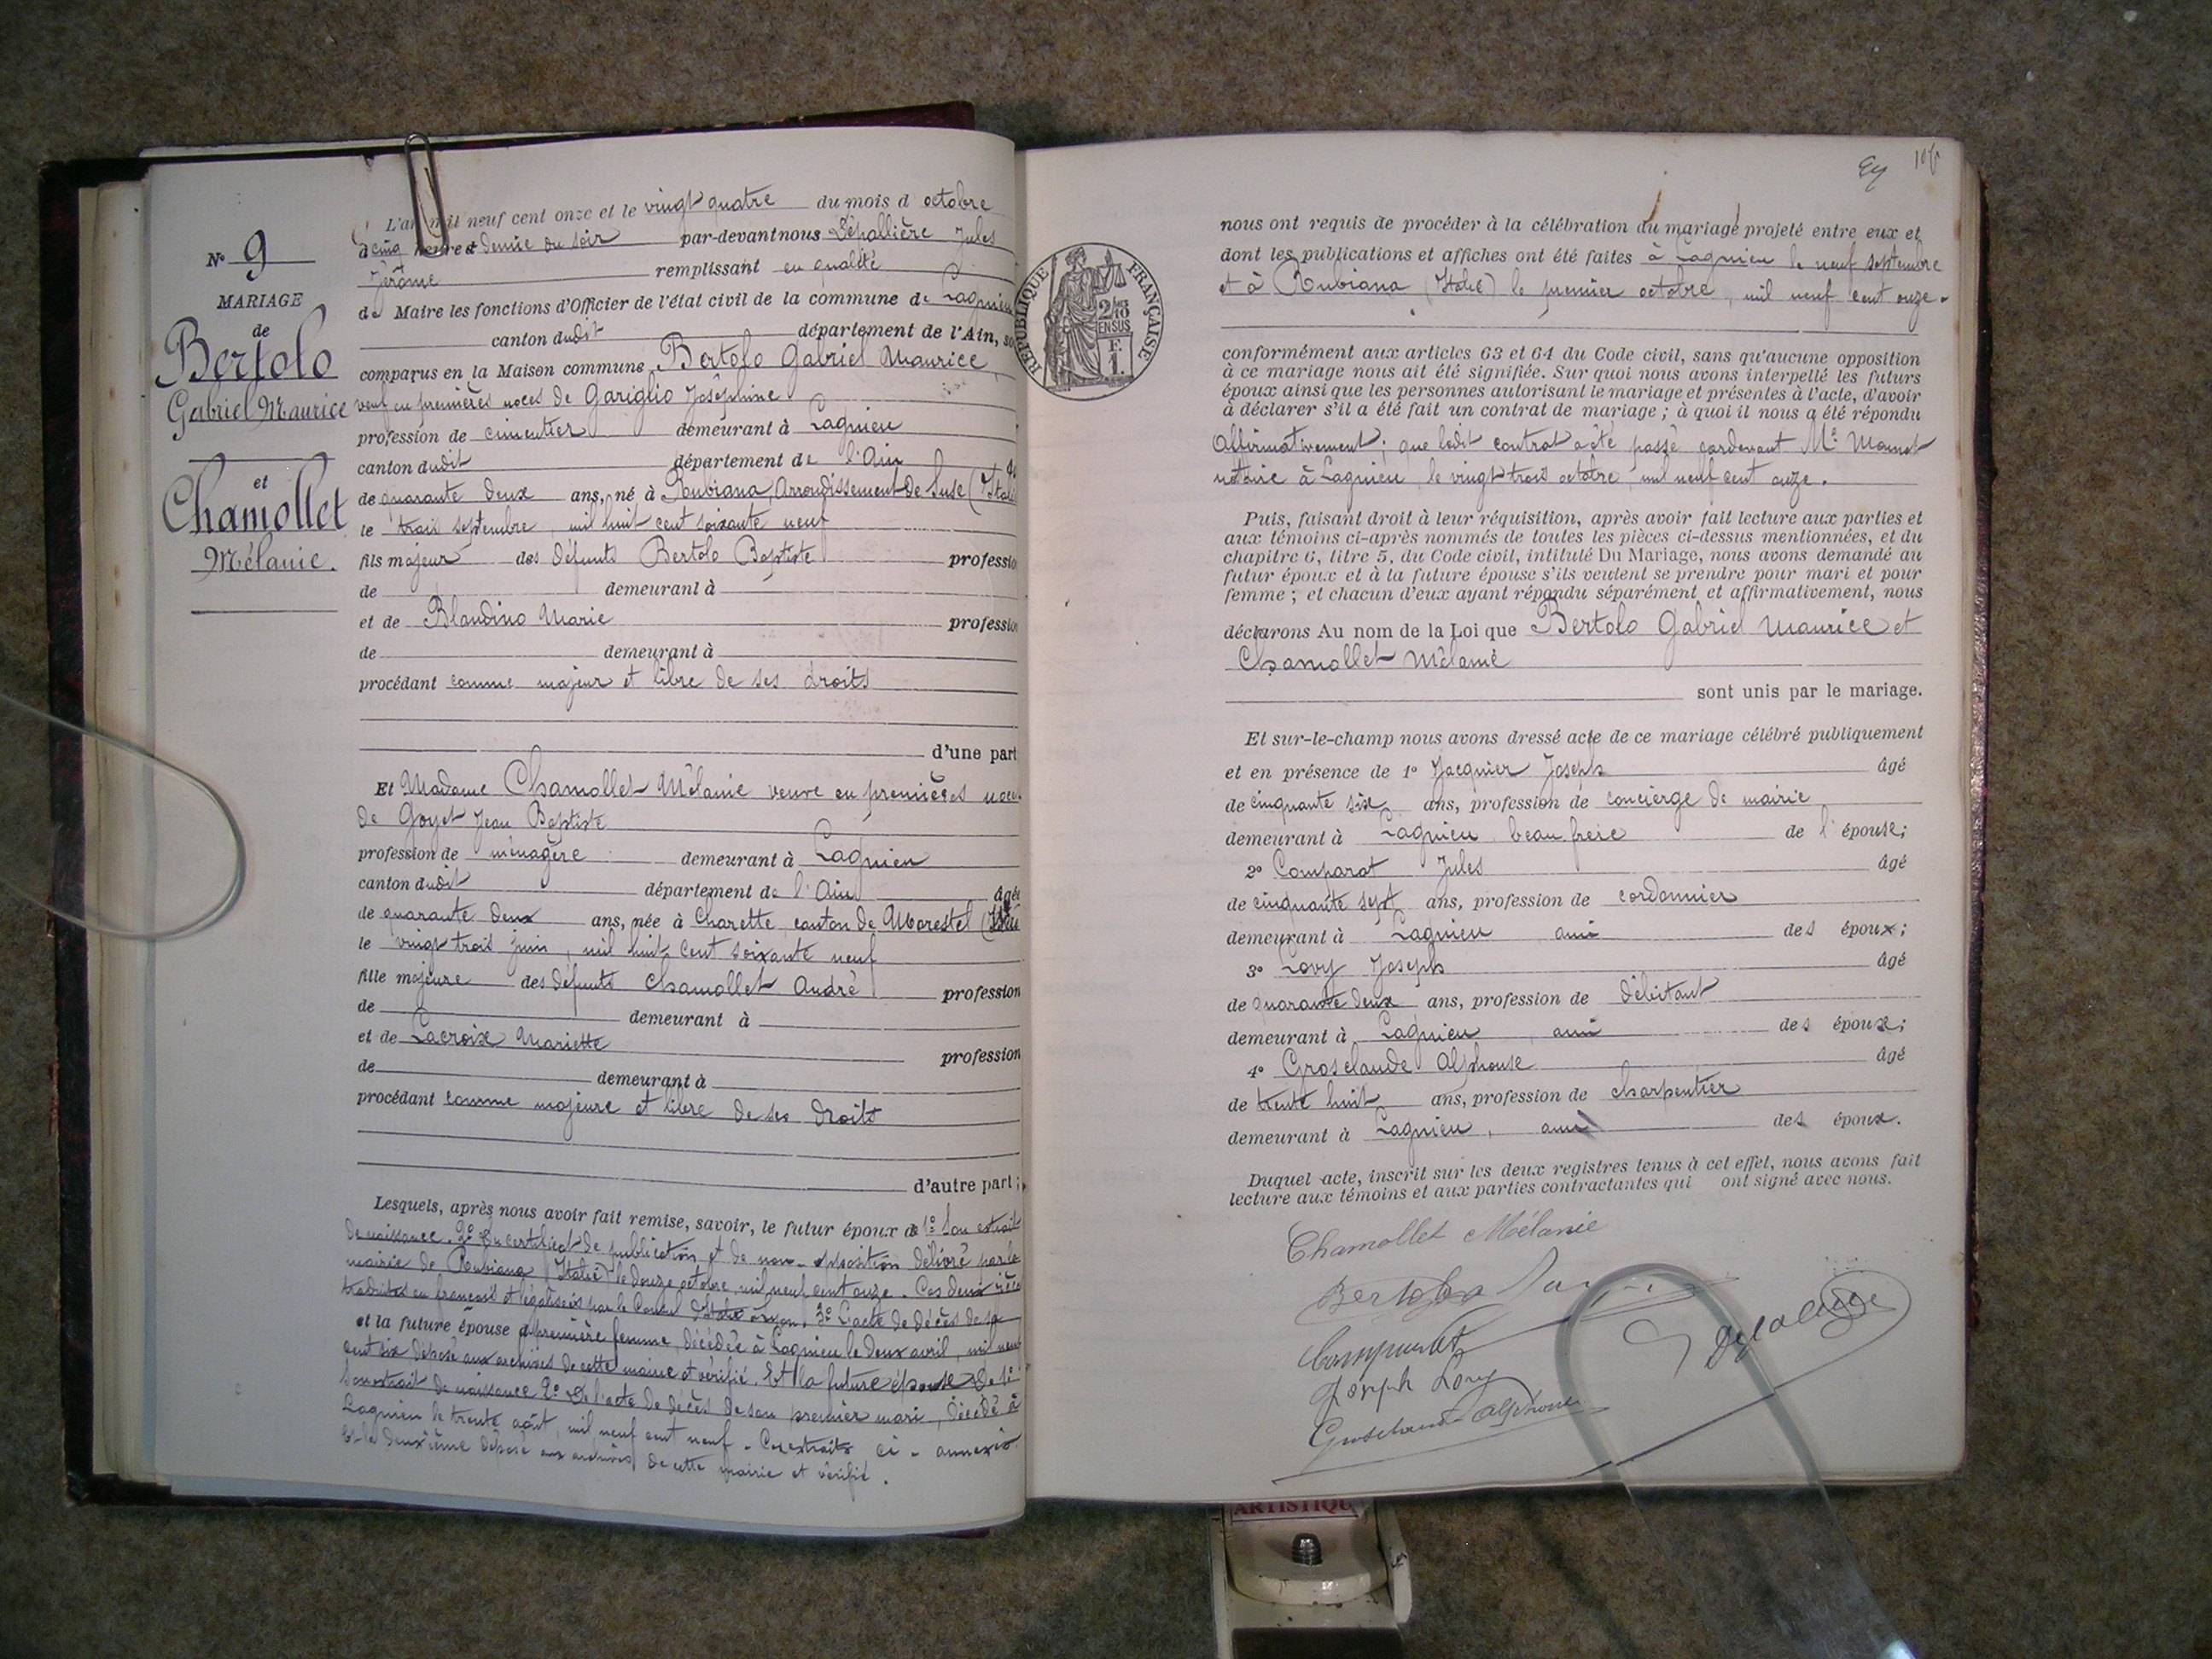 N° 9
MARIAGE
de
Bertolo
Gabriel Maurice
et
Chamollet
Mélanie.
L'an mil neuf cent onze et le vingt quatre du mois d octobre
à cinq heures et demie du soir par-devant nous Jules
Jérôme remplissant en qualité
de Maire les fonctions d'Officier de l'état civil de la commune de Lagnieu
canton dudit département de l'Ain, so
comparus en la Maison commune Bertolo Gabriel Maurice,
veuf en premières noces de Gariglio Joséphine
profession de cimentier demeurant à Lagnieu
canton dudit département de l'Ain
de quarante deux ans, né à Rubiana, Arrondissement de Suse (Italie
le trois septembre, mil huit cent soixante neuf
fils majeur des défunts Bertolo Baptiste professio
de demeurant à
et de Blandino Marie professio
de demeurant à
procédant comme majeur et libre de ses droits
d'une part
Et Madame Chamollet Mélanie veuve en premières noces
de Goyet Jean Baptiste
profession de ménagère demeurant à Lagnieu
canton dudit département de l'Ain âgée
de quarante deux ans, née à Charette, canton de Morestel (Isère
le vingt trois juin, mil huit cent soixante neuf
fille majeure des défunts Chamollet André profession
de demeurant à
et de Lacroix Mariette profession
de demeurant à
procédant comme majeure et libre de ses droits
d'autre part ;
Lesquels, après nous avoir fait remise, savoir, le futur époux de 1° Son extrait
de naissance. 2° Du certificat de publication et de non-opposition délivré par la
mairie de Rubiana (Italie) le douze octobre, mil neuf cent onze. Ces deux
traduites en français et légalisées par le Consul d'Italie à Lyon. 3° L'acte de décès de sa
et la future épouse d première femme, décédée à Lagnieu le deux avril, mil neuf
cent six déposé aux archives de cette mairie et vérifié. Et la future épouse de 1°
Son extrait de naissance 2° De l'acte de décès de son premier mari, décédé à
Lagnieu le trente août, mil neuf cent neuf. extraits ci-annexés
Et le deuxième déposé aux archives de cette mairie et vérifié.
RÉPUBLIQUE FRANÇAISE
2/10
EN SUS
F.
1.
nous ont requis de procéder à la célébration du mariage projeté entre eux et
dont les publications et affiches ont été faites à Lagnieu le neuf septembre
et à Rubiana (Italie) le premier octobre, mil neuf cent onze.
conformément aux articles 63 et 64 du Code civil, sans qu'aucune opposition
à ce mariage nous ait été signifiée. Sur quoi nous avons interpellé les futurs
époux ainsi que les personnes autorisant le mariage et présentes à l'acte, d'avoir
à déclarer s'il a été fait un contrat de mariage ; à quoi il nous a été répondu
Affirmativement ; que ledit contrat a été passé pardevant Me
notaire à Lagnieu, le vingt trois octobre mil neuf cent onze.
Puis, faisant droit à leur réquisition, après avoir fait lecture aux parties et
aux témoins ci-après nommés de toutes les pièces ci-dessus mentionnées, et du
chapitre 6, titre 5, du Code civil, intitulé Du Mariage, nous avons demandé au
futur époux et à la future épouse s'ils veulent se prendre pour mari et pour
femme ; et chacun d'eux ayant répondu séparément et affirmativement, nous
déclarons Au nom de la Loi que Bertolo Gabriel Maurice et
Chamollet Mélanie
sont unis par le mariage.
Et sur-le-champ nous avons dressé acte de ce mariage célébré publiquement
et en présence de 1° Jacquier Joseph âgé
de cinquante six ans, profession de concierge de mairie
demeurant à Lagnieu beau-frère de l'épouse ;
2° Comparat Jules âgé
de cinquante sept ans, profession de cordonnier
demeurant à Lagnieu ami des époux ;
3° Lovy Joseph âgé
de quarante deux ans, profession de débitant
demeurant à Lagnieu, ami des époux ;
4° Grosclaude Alphonse âgé
de trente huit ans, profession de charpentier
demeurant à Lagnieu, ami des époux.
Duquel acte, inscrit sur les deux registres tenus à cet effet, nous avons fait
lecture aux témoins et aux parties contractantes qui ont signé avec nous.
Chamollet Mélanie
Bertolo
Comparat
Joseph Lovy
Grosclaude Alphonse
ARTISTIQU